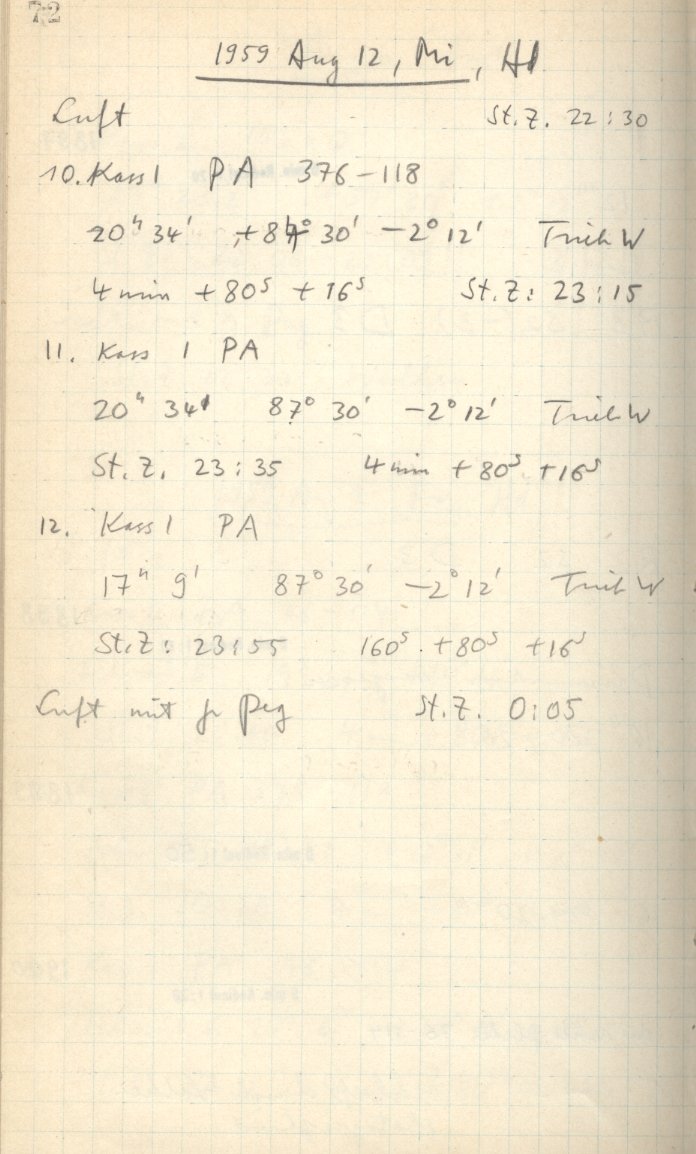 72
1959 Aug 12, Mi, HI
Luft St.Z. 22:30
10. Kass 1 PA 376-118
20ʰ 34' +87° 30' -2° 12' Trieb W
4 min +80ˢ +16ˢ St.Z: 23:15
11. Kass 1 PA
20ʰ 34' 87° 30' -2° 12' Trieb W
St.Z. 23:35 4 min +80ˢ +16ˢ
12. Kass 1 PA
17ʰ 9' 87° 30' -2° 12' Trieb W
St.Z: 23:55 160ˢ. +80ˢ +16ˢ
Luft mit Peg St.Z. 0:05